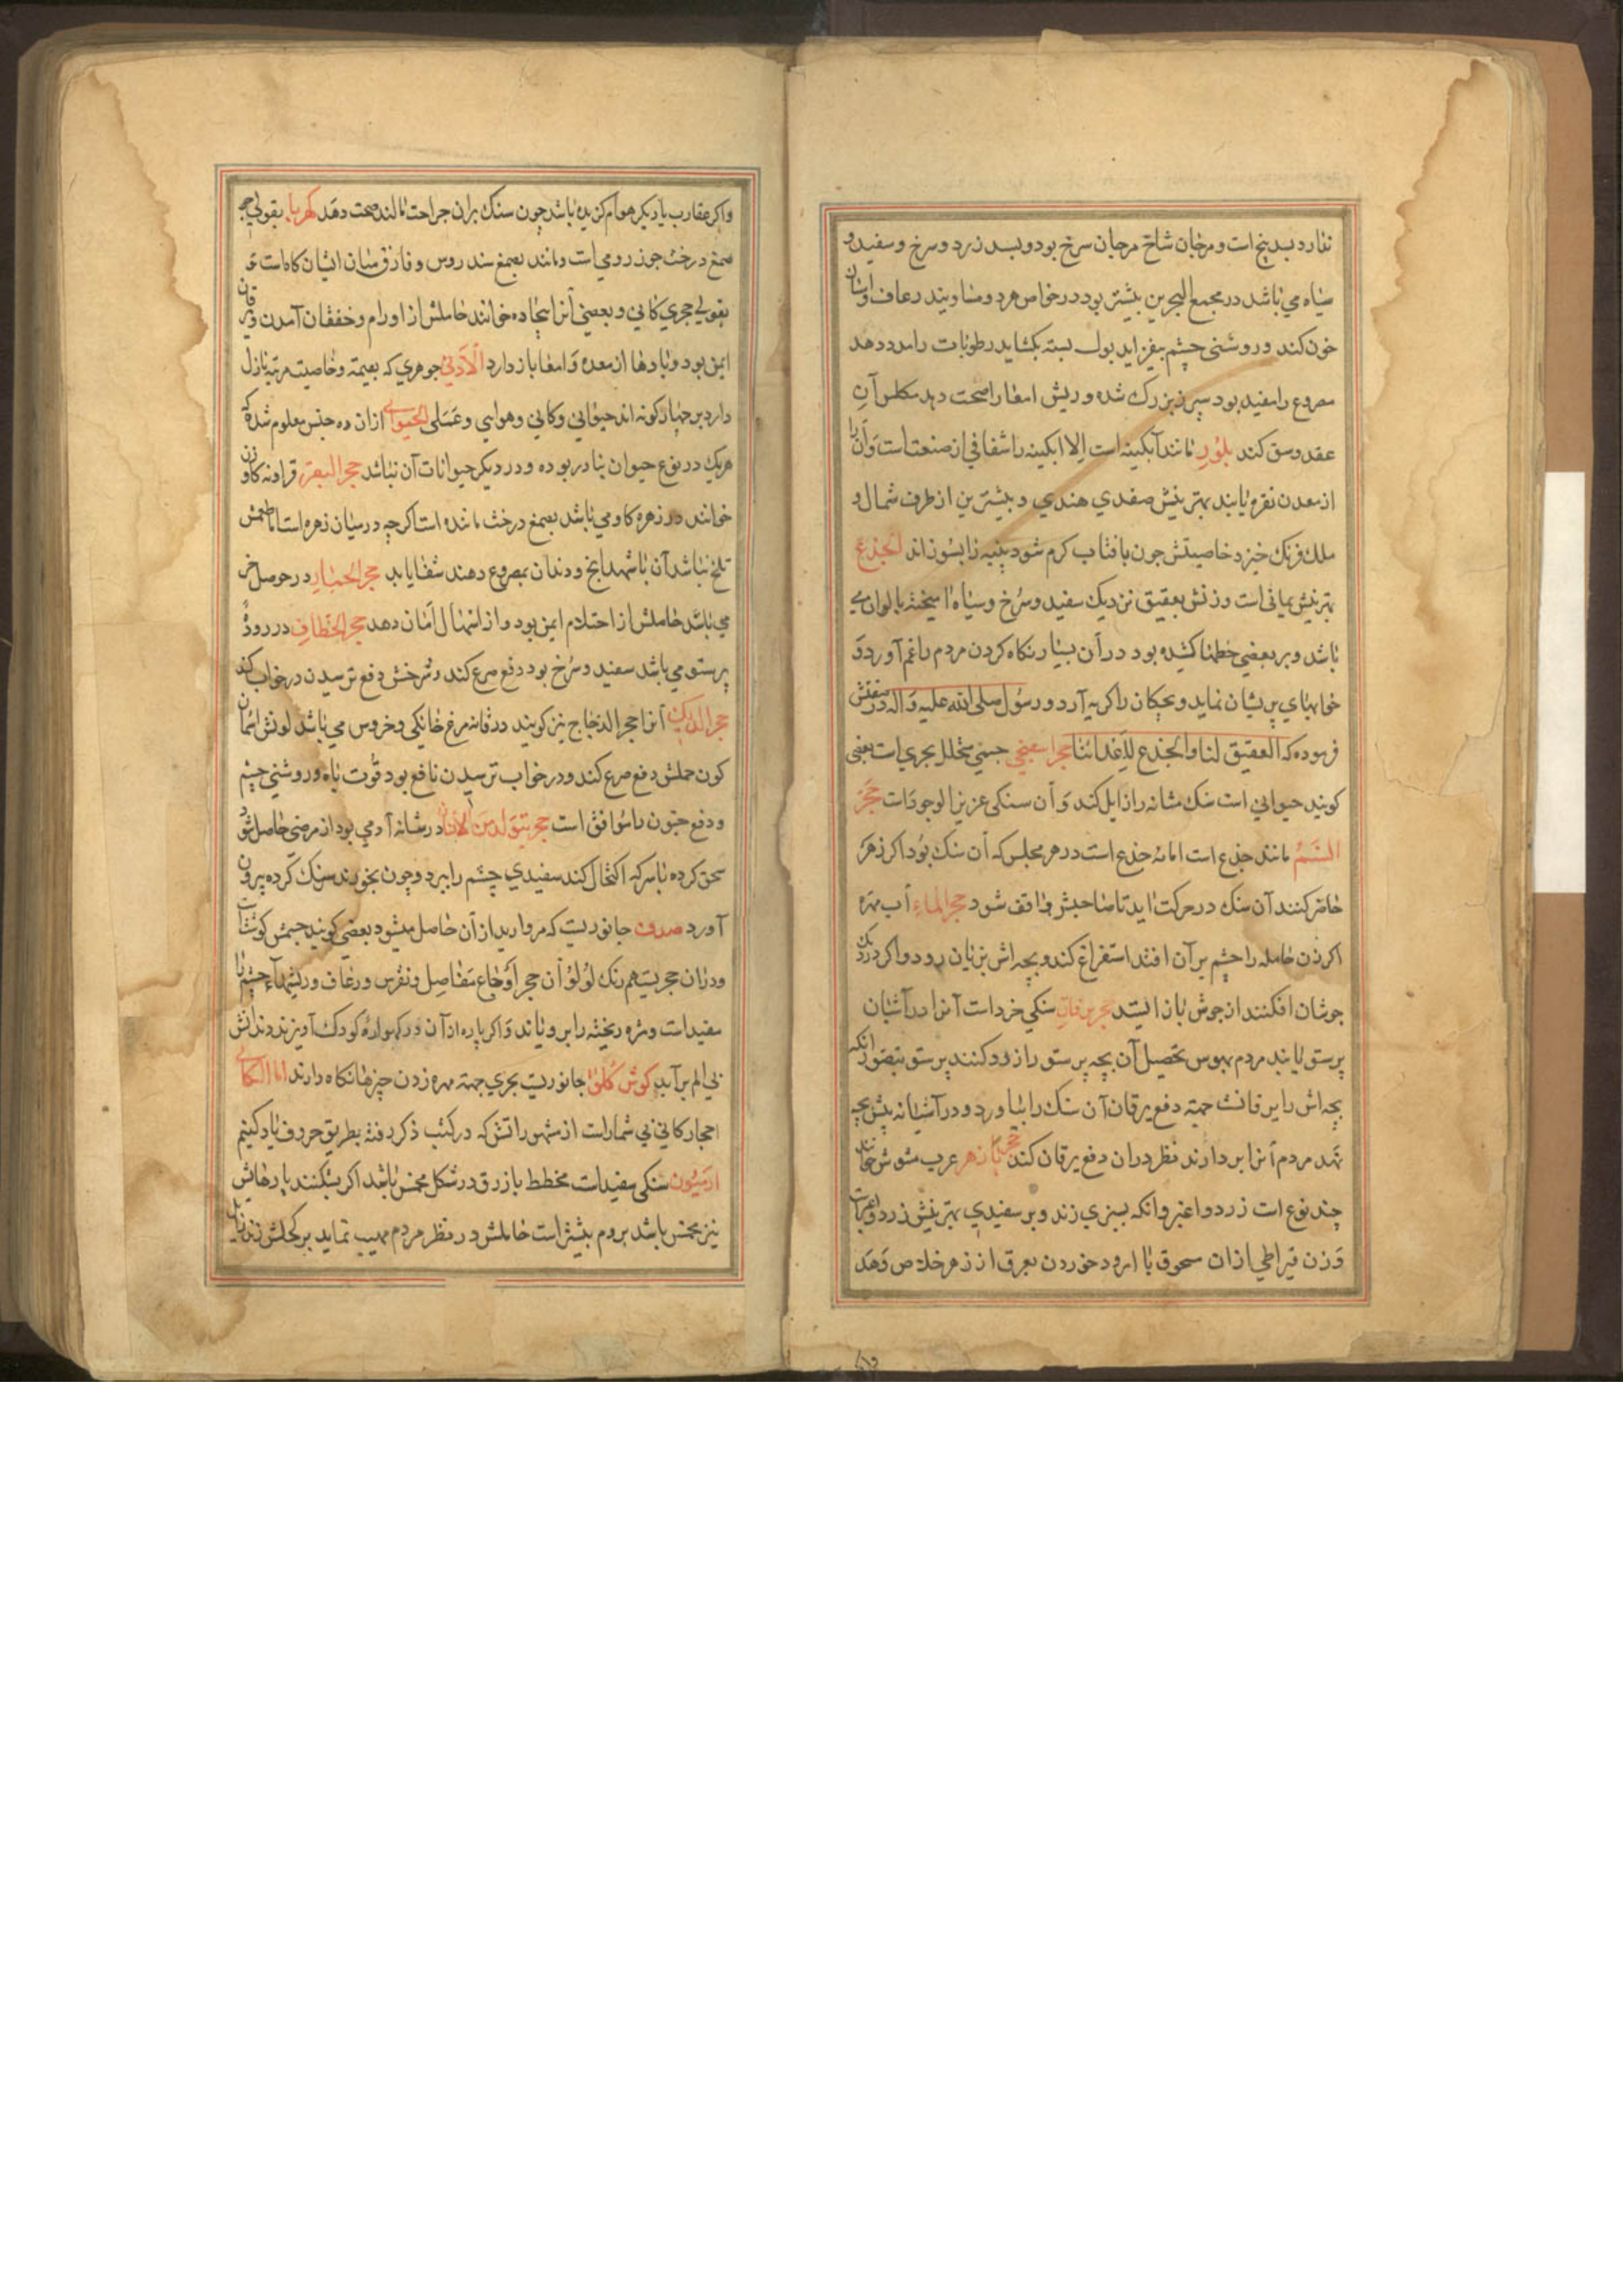 ندارد بسد بیخ است و مرجان شاخ مرجان سرخ بود و بسد زرد و سرخ و سفید و
سیاه می باشد در مجمع البحرین بیشتر بود در خواص هردو متساویند رعاف و امساک
خون کند و روشنی چشم بیفزاید بول بسته بکشاید رطوبات را مدد دهد
مصروع را مفید بود سپرز بزرک شده و ریش امعا را صحت دهد مکلس آن
عقد و سق کند بلور مانند آبکینه است الا ابکینه را شفافی از صنعت است و آن را
از معدن نقره یابند بهترینش صغدی هندی و بیشترین از طرف شمال و
ملک فرنک خیزد خاصیتش چون بافتاب کرم شود پنبه را بسوزاند الجذع
بهترینش یمانی است وزنش بعقیق نزدیک سفید و سرخ و سیاه امیخته بالوان می
باشد و بر بعضی خطها کشیده بود در آن بسیار نکاه کردن مردم را غم آورد و
خوابهای پریشان نماید و بچکان را کریه آرد و رسول صلی الله علیه و آله در صفتش
فرموده که العقیق لنا والجذع لاعدائنا حجر اسفنجی جسمی متخلل بحری است بعضی
کویند حیوانی است سنک مثانه را زایل کند و آن سنکی عزیز الوجود است حجر
السم مانند جذع است اما نه جذع است در هر مجلس که آن سنک بود اکر زهر
حاضر کنند آن سنک در حرکت اید تا صاحبش واقف شود حجر الماء آب مهره
اکر زن حامله را چشم بر آن افتد استفراغ کند و بچه اش بزیان رود و اکر در دیک
جوشان افکنند از جوش باز ایستد حجر یرقان سنکی خرد است آنرا در آشیان
پرستو یابند مردم بهوس تحصیل آن بچه پرستو را زرد کنند پرستو بتصور انکه
بچه اش را یرقانست جهة دفع یرقان آن سنک را بیاورد و در آشیانه پیش بچه
نهد مردم آنرا بردارند نظر در ان دفع یرقان کند حجر پازهر عرب مسوش خوانند
چند نوع است زرد و اغبر و انکه بسبزی زند و بر سفیدی بهترینش زرد و اغبر است
وزن قیراطی از ان مسحوق با امرود خوردن بعرق از زهر خلاص دهد
واکر عقارب یا دیکر هوام کزیده باشد چون سنک بران جراحت مالند صحت دهد کهربا بقولی
صمغ درخت جوز رومی است و مانند بصمغ سندروس و فارق میان ایشان کاه است و
بقولی حجری کانی و بعضی آنرا بیجاده خوانند حاملش از اورام و خفقان آمدن و یرقان
ایمن بود و بادها از معده و امعا باز دارد الادنی جوهری که بقیمة و خاصیت مرتبه نازل
دارد بر چهار کونه اند حیوانی و کانی و هوایی و عسلی الحیوانی ازان ده جنس معلوم شده که
هریک در نوع حیوان بنادر بوده و در دیکر حیوانات آن نباشد حجر البقر قراونه کاوزن
خوانند در زهره کاو می باشد بصمغ درخت مانده است اکرچه در میان زهره است اما طعمش
تلخ نباشد آن با شهدانج و دندان بمصروع دهند شفا یابد حجر الحباری در حوصل
می باشد حاملش از احتلام ایمن بود و از اسهال امان دهد حجر الخطاف در روده
پرستو می باشد سفید و سرخ بود دفع صرع کند و سرخش دفع ترسیدن در خواب کند
حجر الدیک آنرا حجر الدجاج نیز کویند در قانصه مرغ خانکی و خروس می باشد لونش اسمان
کون حملش دفع صرع کند و در خواب ترسیدن نافع بود قوت باه و روشنی چشم
و دفع جنون را موافق است حجر یتولد من الانسان در مثانه آدمی بود از مرضی حاصل شود
سحق کرده با سرکه اکتحال کند سفیدی چشم را ببرد و چون بخورند سنک کرده بیرون
آورد صدف جانوریست که مروارید از آن حاصل میشود بعضی کویند جسمش کوشتست
ودران حجریست همرنک لؤلؤ آن حجر اوجاع مفاصل و نقرس و رعاف و ریشهاء چشم را
مفید است و مژه ریخته را برویاند و اکر پاره از آن در کهواره کودک آویزند دندانش
بی الم برآید کوش کلق جانوریست بحری جهة مهره زدن چیزها نکاه دارند اما الکانی
احجار کانی بی شمار است از مشهوراتش که در کتب ذکر رفته بطریق حروف یاد کنیم
ارمیون سنکی سفید است مخطط با زرق در شکل مخمس باشد اکر بشکنند پارهاش
نیز مخمس باشد بروم بیشتر است حاملش در نظر مردم مهیب نماید